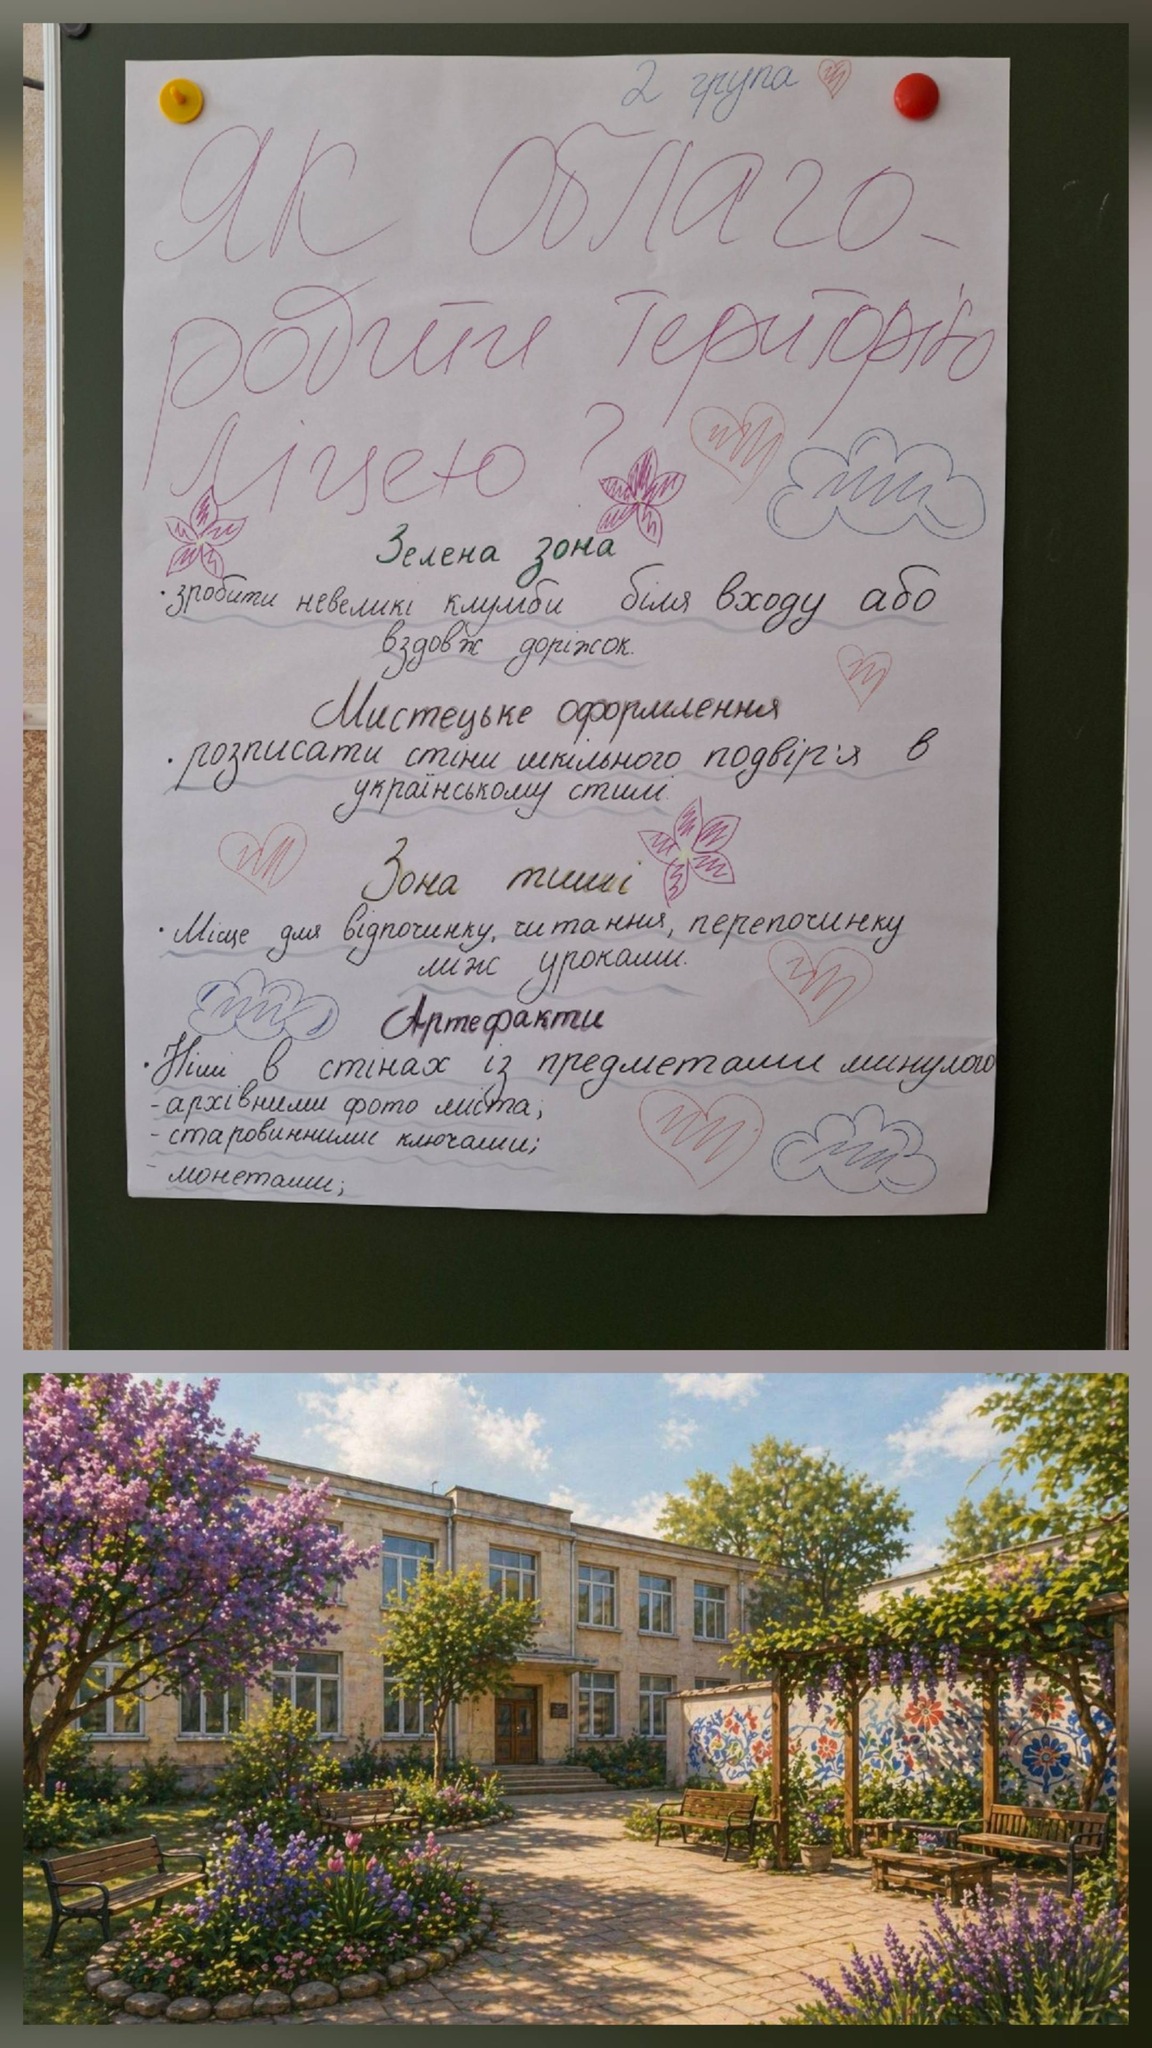 2 група
Як облаго-
родити територію
ліцею?
Зелена зона
· зробити невеликі клумби біля входу або
вздовж доріжок.
Мистецьке оформлення
· розписати стіни шкільного подвір'я в
українському стилі.
Зона тиші
· Місце для відпочинку, читання, перепочинку
між уроками.
Артефакти
· Ніші в стінах із предметами минулого
- архівними фото міста;
- старовинними ключами;
- монетами;